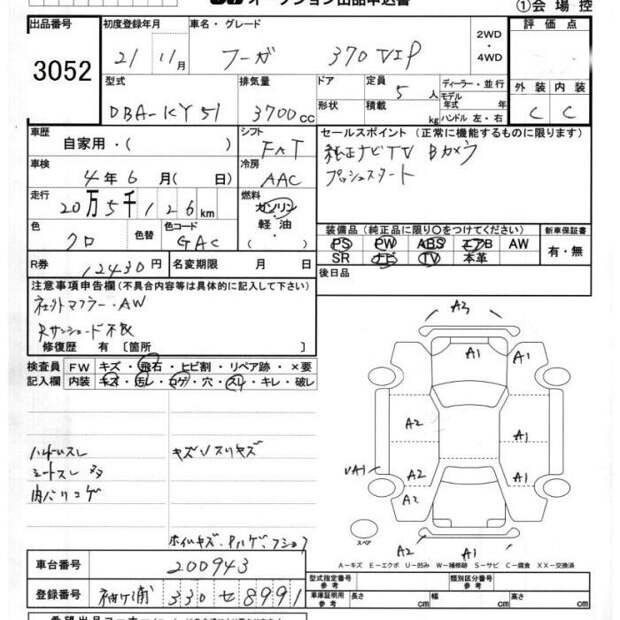 オークション出品申込書
①会場控
出品番号 初度登録年月 車名・グレード 2WD・4WD 評価点
3052 21 11月 フーガ 370 VIP
型式 排気量 ドア 定員 ディーラー・並行 外装 内装
DBA-KY51 3700cc 形状 5人 積載 kg モデル年式 年 ハンドル 左・右 C C
車歴 シフト セールスポイント(正常に機能するものに限ります)
自家用・( ) FAT 純正ナビTV Bカメラ
車検 冷房 プッシュスタート
4年6月(日) AAC
走行 燃料
20万5千126km ガソリン・軽油・( )
装備品(純正品に限り○をつけてください) 新車保証書
色 色替 色コード PS PW ABS エアB AW 有・無
クロ GAC SR ナビ TV 本革
R券 12430円 名変期限 月 日 後日品
注意事項申告欄(不具合内容等は具体的に記入して下さい)
社外マフラー・AW
Rサンシェード不良
修復歴 有〔箇所 〕
検査員記入欄 FW キズ・飛石・ヒビ割・リペア跡・×要
内装 キズ・汚レ・コゲ・穴・スレ・キレ・破レ
ハンドルスレ キズ\スリキズ
シートスレ 多
内バリコゲ
A3
A1 A1
A2 A1
A2 A1
UA1
A2 A1
スペア
A-キズ E-エクボ U-凹み W-補修跡 S-サビ C-腐食 XX-交換済
車台番号 200943
登録番号 袖ヶ浦 330 セ 8991
型式指定番号 参考 類別区分番号 参考
車庫証明用 参考 長さ cm 幅 cm 高さ cm